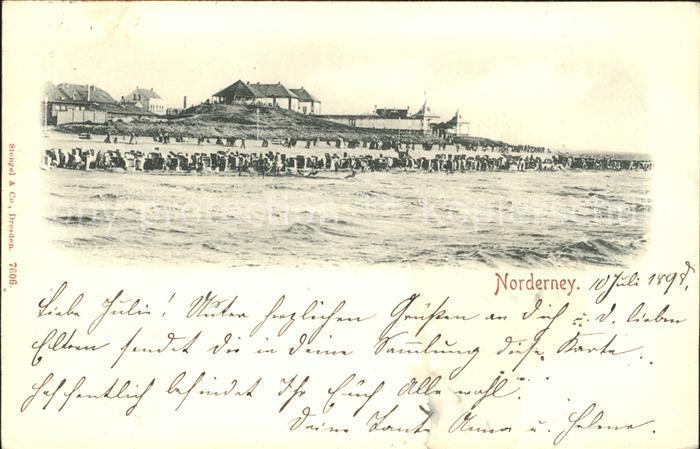 Stengel & Co., Dresden. 7606.
copy protection - kopierschutz
Norderney. 10 Juli 1898.
Liebe Julie! Unter herzlichen Grüßen an Dich u. d. lieben
Eltern sendet Dir in deine Sammlung diese Karte.
Hoffentlich befindet Ihr Euch Alle wohl.
Deine Tante Anna u. Helene.